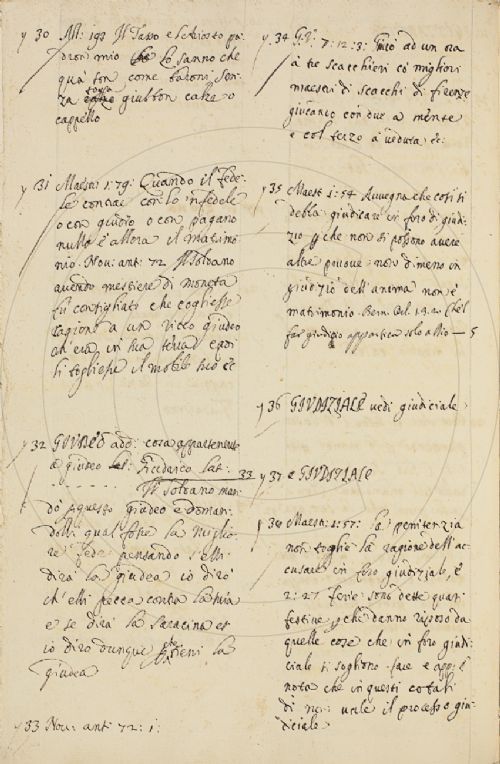 30 All: 193 Il Tasso e l'Ariosto pa
droni mio lo sanno che
qua son come baroni, sen
za giubbon calze o
cappello
31 Maestr: 1: 79: Quando il fede
le contrae con lo infedele
o con giudio o con pagano
nullo è allora il matrimo
nio. Nou: ant: 72 Il Soldano
auendo mestiere di moneta
fu consigliato che cogliesse
cagione a un ricco giudeo
ch'era in sua terra e poi
li togliesse il mobile suo &c
32 GIUDEO add: cosa appartenente
a giudeo Lat: Iudaicus Lat:
33
Il Soldano man
dò p questo giudeo e doman
dolli qual fosse la miglio
re fede pensando s'elli
dirà la giudea io dirò
ch'elli pecca contra la mia
e se dirà la Saracina et
io dirò dunque pche tieni la
giudea
33 Nou: ant: 72: 1:
34 G.V: 7: 12: 3: Giucò ad un ora
a tre scacchieri co migliori
maestri di scacchi di firenze
giucando con due a mente
e col terzo a ueduta &c:
35 Maestr: 1: 54 Auuegna che così si
debba giudicare in foro di giudi
zio p che non si possono auere
altre pruoue: non di meno in
giudizio dell'anima non è
matrimonio. Bern. Orl. 1.9.2. Ch'l
far giudizio appartien solo a Dio — 5
36 GIUDIZIALE uedi giudiciale
37 e GIUDIZIALE
38 Maestr: 1: 57: la penitenzia
non toglie la ragione dell'ac
cusare in foro giudiziale, e
2: 27 ferie sono dette quasi
festiue, p che danno riposo da
quelle cose che in foro giudi
ciale si sogliono fare e app: s
nota che in questi cotali
dì non uale il processo giu
diciale